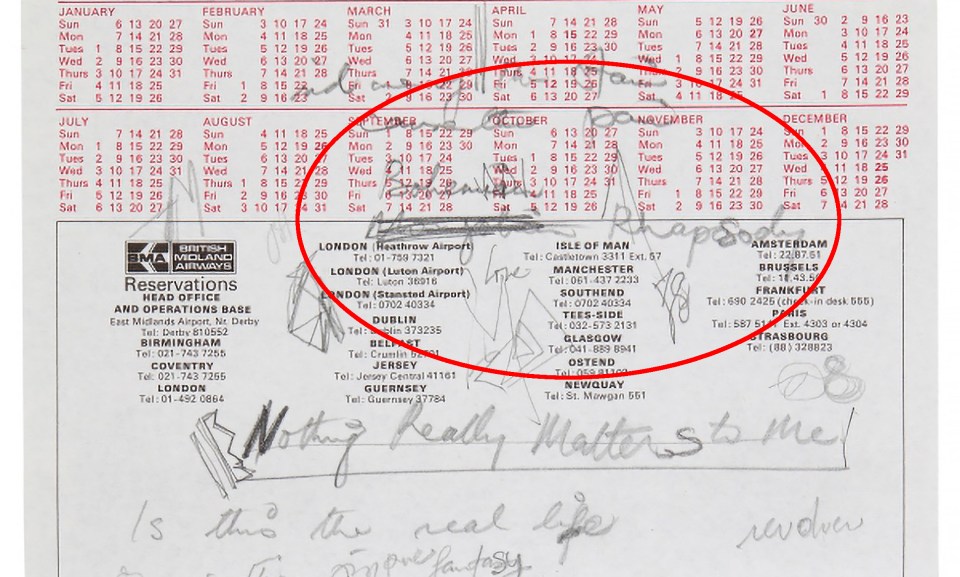 JANUARY
Sun 6 13 20 27
Mon 7 14 21 28
Tues 1 8 15 22 29
Wed 2 9 16 23 30
Thurs 3 10 17 24 31
Fri 4 11 18 25
Sat 5 12 19 26
FEBRUARY
Sun 3 10 17 24
Mon 4 11 18 25
Tues 5 12 19 26
Wed 6 13 20 27
Thurs 7 14 21 28
Fri 1 8 15 22
Sat 2 9 16 23
MARCH
Sun 31 3 10 17 24
Mon 4 11 18 25
Tues 5 12 19 26
Wed 6 13 20 27
Thurs 7 14 21 28
Fri 1 8 15 22 29
Sat 2 9 16 23 30
APRIL
Sun 7 14 21 28
Mon 1 8 15 22 29
Tues 2 9 16 23 30
Wed 3 10 17 24
Thurs 4 11 18 25
Fri 5 12 19 26
Sat 6 13 20 27
MAY
Sun 5 12 19 26
Mon 6 13 20 27
Tues 7 14 21 28
Wed 1 8 15 22 29
Thurs 2 9 16 23 30
Fri 3 10 17 24 31
Sat 4 11 18 25
JUNE
Sun 30 2 9 16 23
Mon 3 10 17 24
Tues 4 11 18 25
Wed 5 12 19 26
Thurs 6 13 20 27
Fri 7 14 21 28
Sat 1 8 15 22 29
JULY
Sun 7 14 21 28
Mon 1 8 15 22 29
Tues 2 9 16 23 30
Wed 3 10 17 24 31
Thurs 4 11 18 25
Fri 5 12 19 26
Sat 6 13 20 27
AUGUST
Sun 4 11 18 25
Mon 5 12 19 26
Tues 6 13 20 27
Wed 7 14 21 28
Thurs 1 8 15 22 29
Fri 2 9 16 23 30
Sat 3 10 17 24 31
SEPTEMBER
Sun 1 8 15 22 29
Mon 2 9 16 23 30
Tues 3 10 17 24
Wed 4 11 18 25
Thurs 5 12 19 26
Fri 6 13 20 27
Sat 7 14 21 28
OCTOBER
Sun 6 13 20 27
Mon 7 14 21 28
Tues 1 8 15 22 29
Wed 2 9 16 23 30
Thurs 3 10 17 24 31
Fri 4 11 18 25
Sat 5 12 19 26
NOVEMBER
Sun 3 10 17 24
Mon 4 11 18 25
Tues 5 12 19 26
Wed 6 13 20 27
Thurs 7 14 21 28
Fri 1 8 15 22 29
Sat 2 9 16 23 30
DECEMBER
Sun 1 8 15 22 29
Mon 2 9 16 23 30
Tues 3 10 17 24 31
Wed 4 11 18 25
Thurs 5 12 19 26
Fri 6 13 20 27
Sat 7 14 21 28
Bohemian
Rhapsody
BMA BRITISH MIDLAND AIRWAYS
Reservations
HEAD OFFICE
AND OPERATIONS BASE
East Midlands Airport, Nr. Derby
Tel: Derby 810552
BIRMINGHAM
Tel: 021-743 7255
COVENTRY
Tel: 021-743 7255
LONDON
Tel: 01-492 0864
LONDON (Heathrow Airport)
Tel: 01-759 7321
LONDON (Luton Airport)
Tel: Luton 36916
LONDON (Stansted Airport)
Tel: 0702 40334
DUBLIN
Tel: Dublin 373235
BELFAST
Tel: Crumlin
JERSEY
Tel: Jersey Central 41161
GUERNSEY
Tel: Guernsey 37784
Love
ISLE OF MAN
Tel: Castletown 3311 Ext. 57
MANCHESTER
Tel: 061-437 2233
SOUTHEND
Tel: 0702 40334
TEES-SIDE
Tel: 032-573 2131
GLASGOW
Tel: 041-889 8941
OSTEND
Tel: 059
NEWQUAY
Tel: St. Mawgan 551
AMSTERDAM
Tel: 22.87.61
BRUSSELS
Tel: 11.43.5
FRANKFURT
Tel: 690 2425 (check-in desk 555)
PARIS
Tel: 587 514 Ext. 4303 or 4304
STRASBOURG
Tel: (88) 328823
Nothing Really Matters to Me
Is this the real life revolver
fantasy